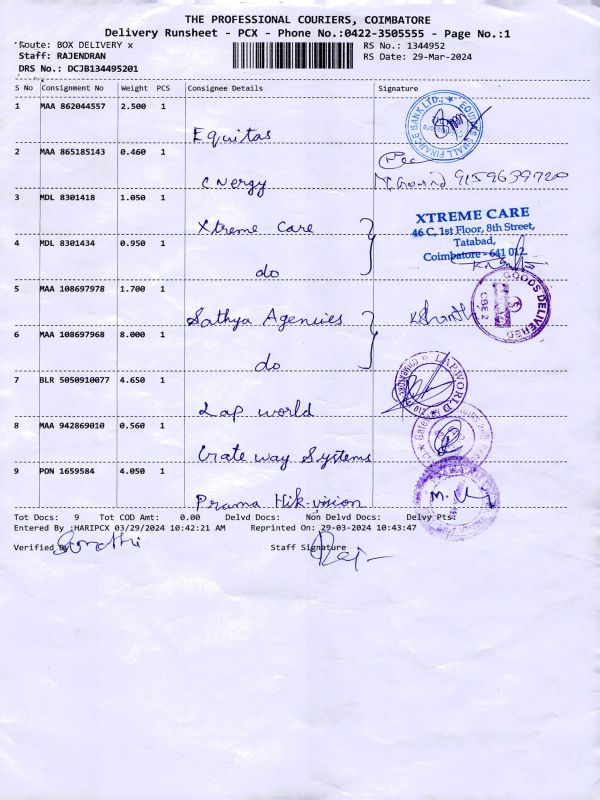 THE PROFESSIONAL COURIERS, COIMBATORE
Delivery Runsheet - PCX - Phone No.:0422-3505555 - Page No.:1
Route: BOX DELIVERY x
RS No.: 1344952
Staff: RAJENDRAN
RS Date: 29-Mar-2024
DRS No.: DCJB134495201
S No Consignment No Weight PCS Consignee Details Signature
1 MAA 862044557 2.500 1
Equitas
EQUITAS SMALL FINANCE BANK LTD.,
2 MAA 865185143 0.460 1
Energy
9159639720
3 MDL 8301418 1.050 1
Xtreme Care
XTREME CARE
46 C, 1st Floor, 8th Street,
Tatabad,
Coimbatore - 641 012.
4 MDL 8301434 0.950 1
do
5 MAA 108697978 1.700 1
Sathya Agencies
KShanthi
GOODS DELIVERED
CBE 2
6 MAA 108697968 8.000 1
do
7 BLR 5050910077 4.650 1
Lap world
LAPWORLD
8 MAA 942869010 0.560 1
Gate way Systems
9 PON 1659584 4.050 1
Prama Hik-vision
Tot Docs: 9 Tot COD Amt: 0.00 Delvd Docs: Non Delvd Docs: Delvy Pts:
Entered By :HARIPCX 03/29/2024 10:42:21 AM Reprinted On: 29-03-2024 10:43:47
Verified By Staff Signature